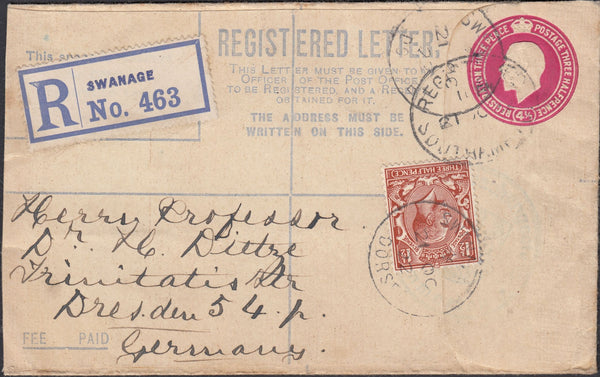 REGISTERED LETTER.
THIS LETTER MUST BE GIVEN TO AN
OFFICER OF THE POST OFFICE
TO BE REGISTERED, AND A RECEIPT
OBTAINED FOR IT.
THE ADDRESS MUST BE
WRITTEN ON THIS SIDE.
This
R
SWANAGE
No. 463
REGISTRATION THREE PENCE
POSTAGE THREE HALFPENCE
(4½)
THREE HALFPENCE
Herrn Professor
Dr H. Dittre
Trinitatis Str
Dresden 54. p.
Germany.
FEE PAID